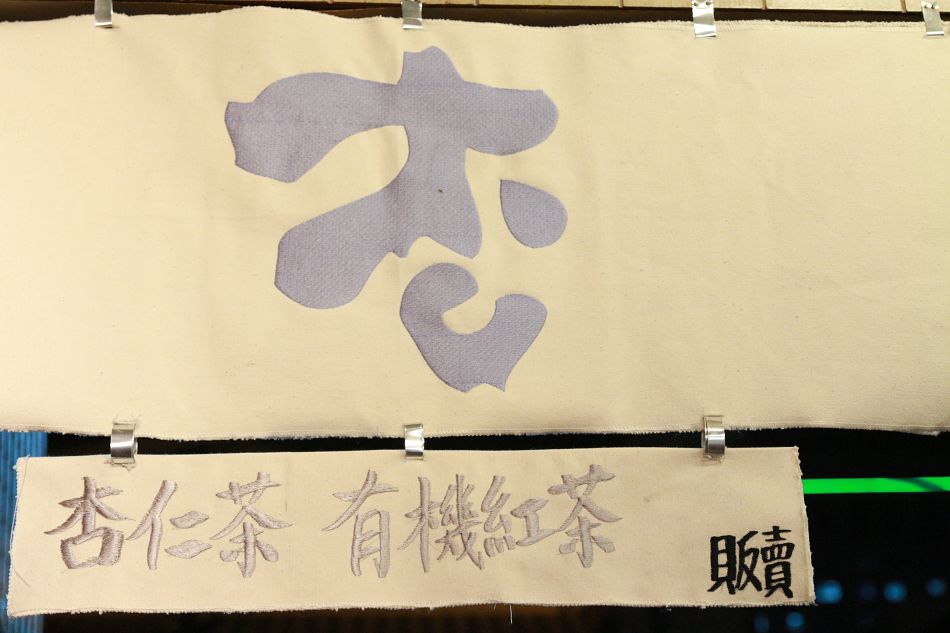 杏
杏仁茶 有機紅茶 販賣